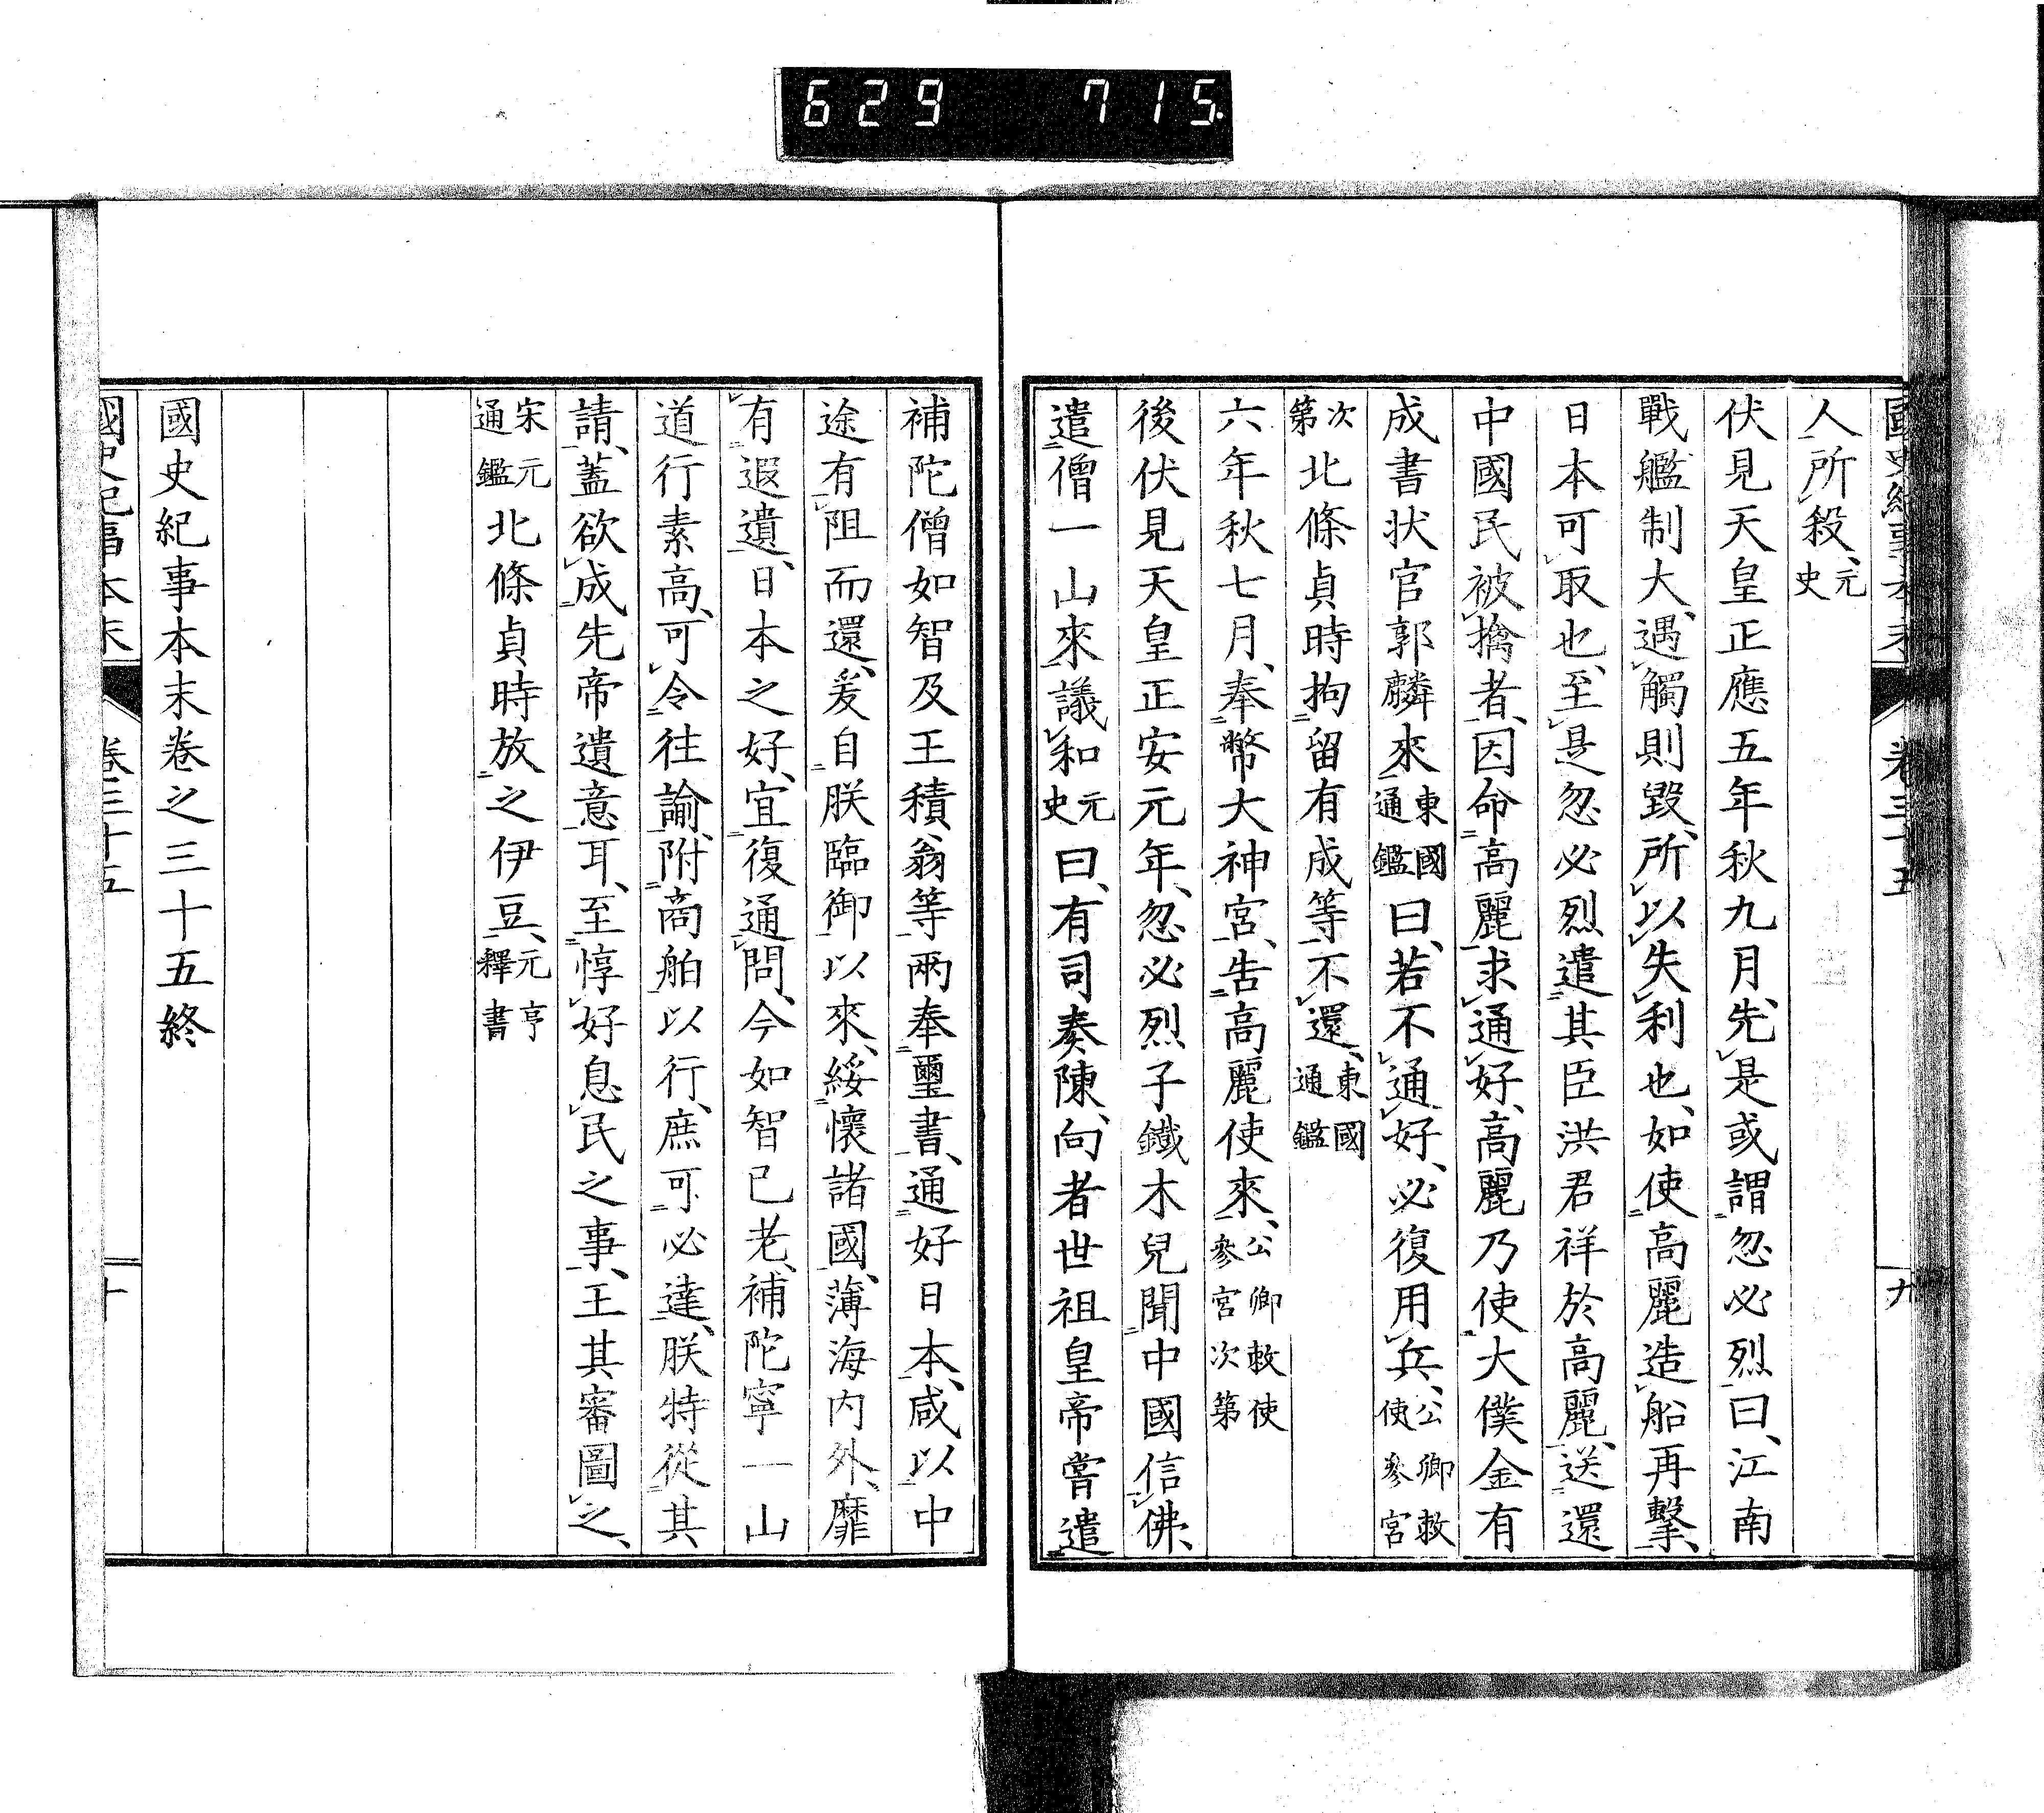 629 715
國史紀事本末 卷三十五 九
人所殺、元史
伏見天皇正應五年秋九月、先是或謂忽必烈曰、江南
戰艦制大、遇觸則毀、所以失利也、如使高麗造船再擊、
日本可取也、至是忽必烈遣其臣洪君祥於高麗、送還
中國民被擒者、因命高麗求通好、高麗乃使大僕金有
成書狀官郭麟來東國通鑑曰、若不通好、必復用兵、公卿敕使參宮
次第北條貞時拘留有成等不還、東國通鑑
六年秋七月、奉幣大神宮、告高麗使來、公卿敕使參宮次第
後伏見天皇正安元年、忽必烈子鐵木兒聞中國信佛、
遣僧一山來議和元史曰、有司奏陳、向者世祖皇帝嘗遣
補陀僧如智及王積翁等兩奉璽書、通好日本、咸以中
途有阻而還、爰自朕臨御以來、綏懷諸國、薄海內外、靡
有遐遺、日本之好、宜復通問、今如智已老、補陀寧一山
道行素高、可令往諭、附商舶以行、庶可必達、朕特從其
請、蓋欲成先帝遺意耳、至惇好息民之事、王其審圖之、
宋元通鑑北條貞時放之伊豆、元亨釋書
國史紀事本末卷之三十五終
國史紀事本末 卷三十五 十